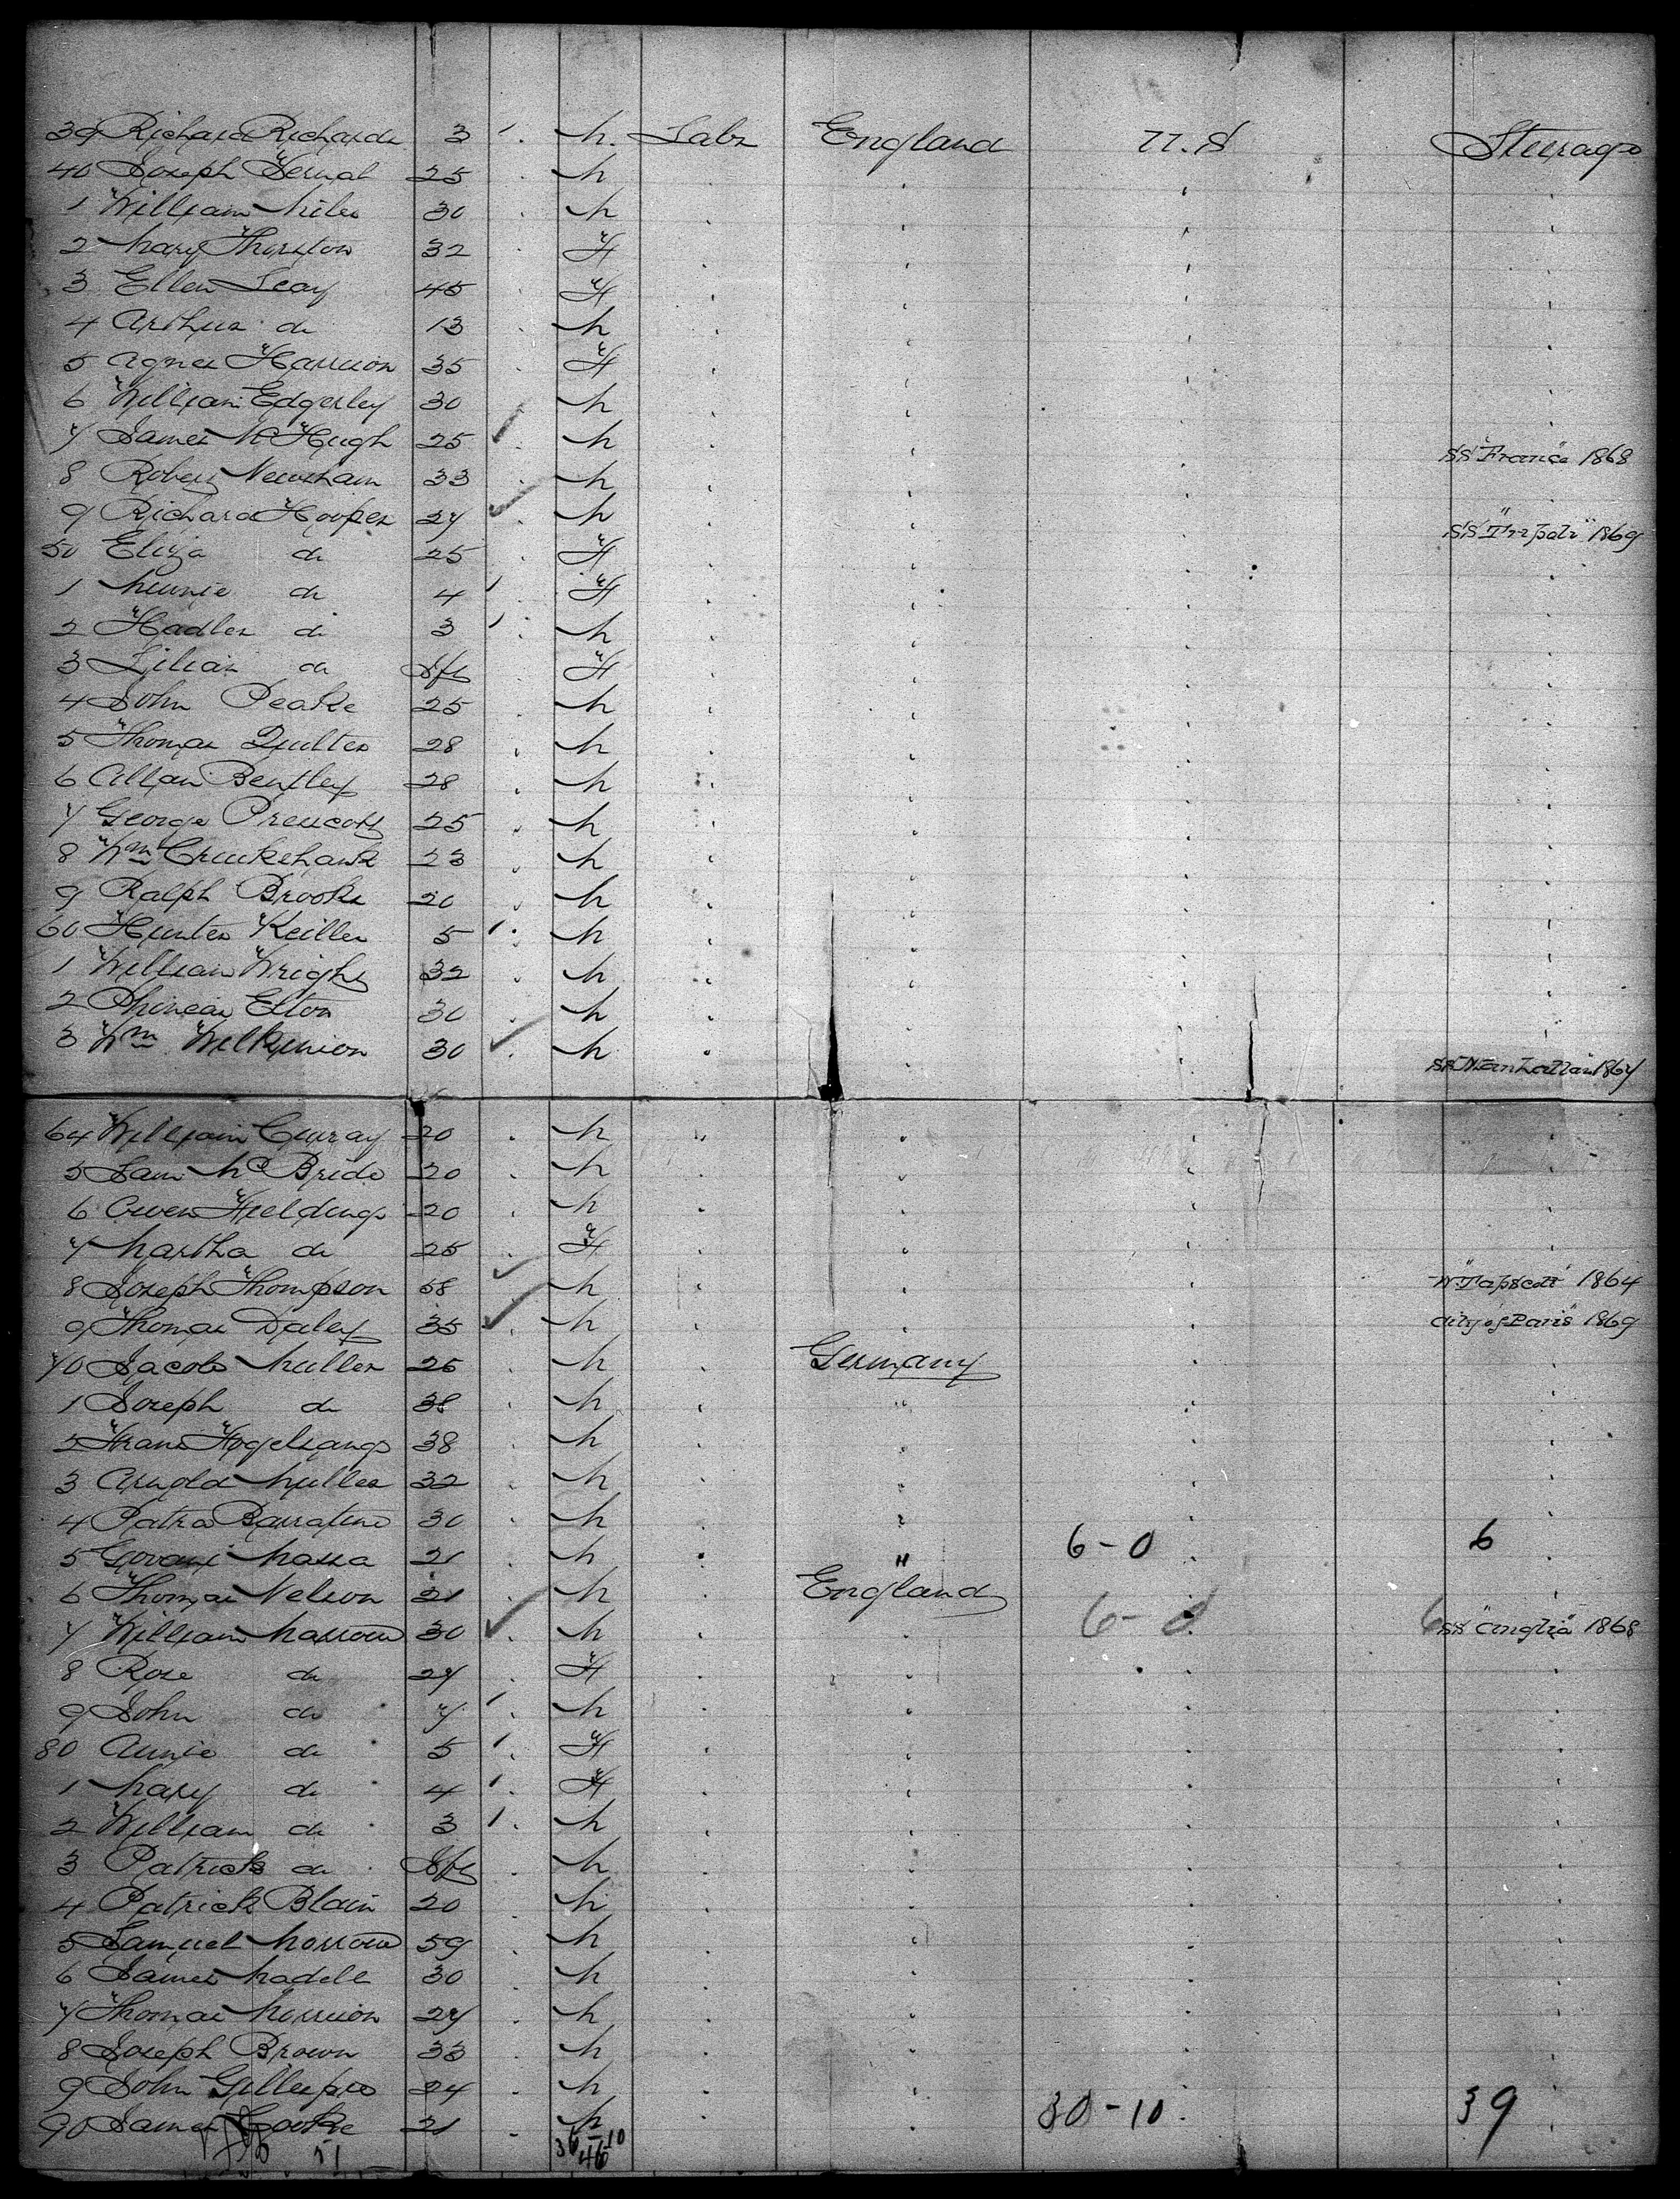 39 Richard Richards 3 ' . M. Labr England U.S Steerage
40 Joseph Bernal 25 . M
1 William Miles 30 . M
2 Mary Thurston 32 . F
3 Ellen Leay 45 . F
4 Arthur do 13 . M
5 Agnes Harrison 35 . F
6 William Edgerley 30 . M
7 James McHugh 25 ✓ M SS "France" 1868
8 Robert Newsham 33 . M
9 Richard Hooper 27 ✓ M SS 1869
50 Eliza do 25 . F
1 Minnie do 4 ' F
2 Hadler do 3 ' M
3 Lilian do Inf F
4 John Peake 25 . M
5 Thomas Quilter 28 . M
6 Allan Bentley 28 . M
7 George Prescott 25 . M
8 Wm Cruikshank 23 . M
9 Ralph Brooks 20 . M
60 Hunter Keiller 5 ' M
1 William Wright 32 . M
2 Phineas Elton 30 . M
3 Wm Wilkinson 30 ✓ M SS "Manhattan" 1867
64 William Curray 20 . M
5 Sam McBride 20 . M
6 Owen Fieldings 20 . M
7 Martha do 25 . F
8 Joseph Thompson 58 ✓ M W "Tapscott" 1864
9 Thomas Daley 35 ✓ M City of Paris" 1869
70 Jacob Muller 26 . M Germany
1 Joseph do 38 . M "
2 Frans Vogelsangs 38 . M
3 Arnold Muller 32 . M
4 Patra Barratine 30 . M " 6-0 6
5 Giovani Massa 21 . M "
6 Thomas Nelson 21 . M England
7 William Marrow 30 ✓ M 6-0 6 SS "Anglia" 1868
8 Rose do 27 . F
9 John do 7 ' M
80 Annie do 5 ' F
1 Mary do 4 ' F
2 William do 3 ' M
3 Patrick do Inf M
4 Patrick Blain 20 . M
5 Samuel Morrow 59 . M
6 James Madell 30 . M
7 Thomas Morrison 27 . M
8 Joseph Brown 33 . M
9 John Gillespie 24 . M
90 James Cooke 21 . M 30-10 39
51 46